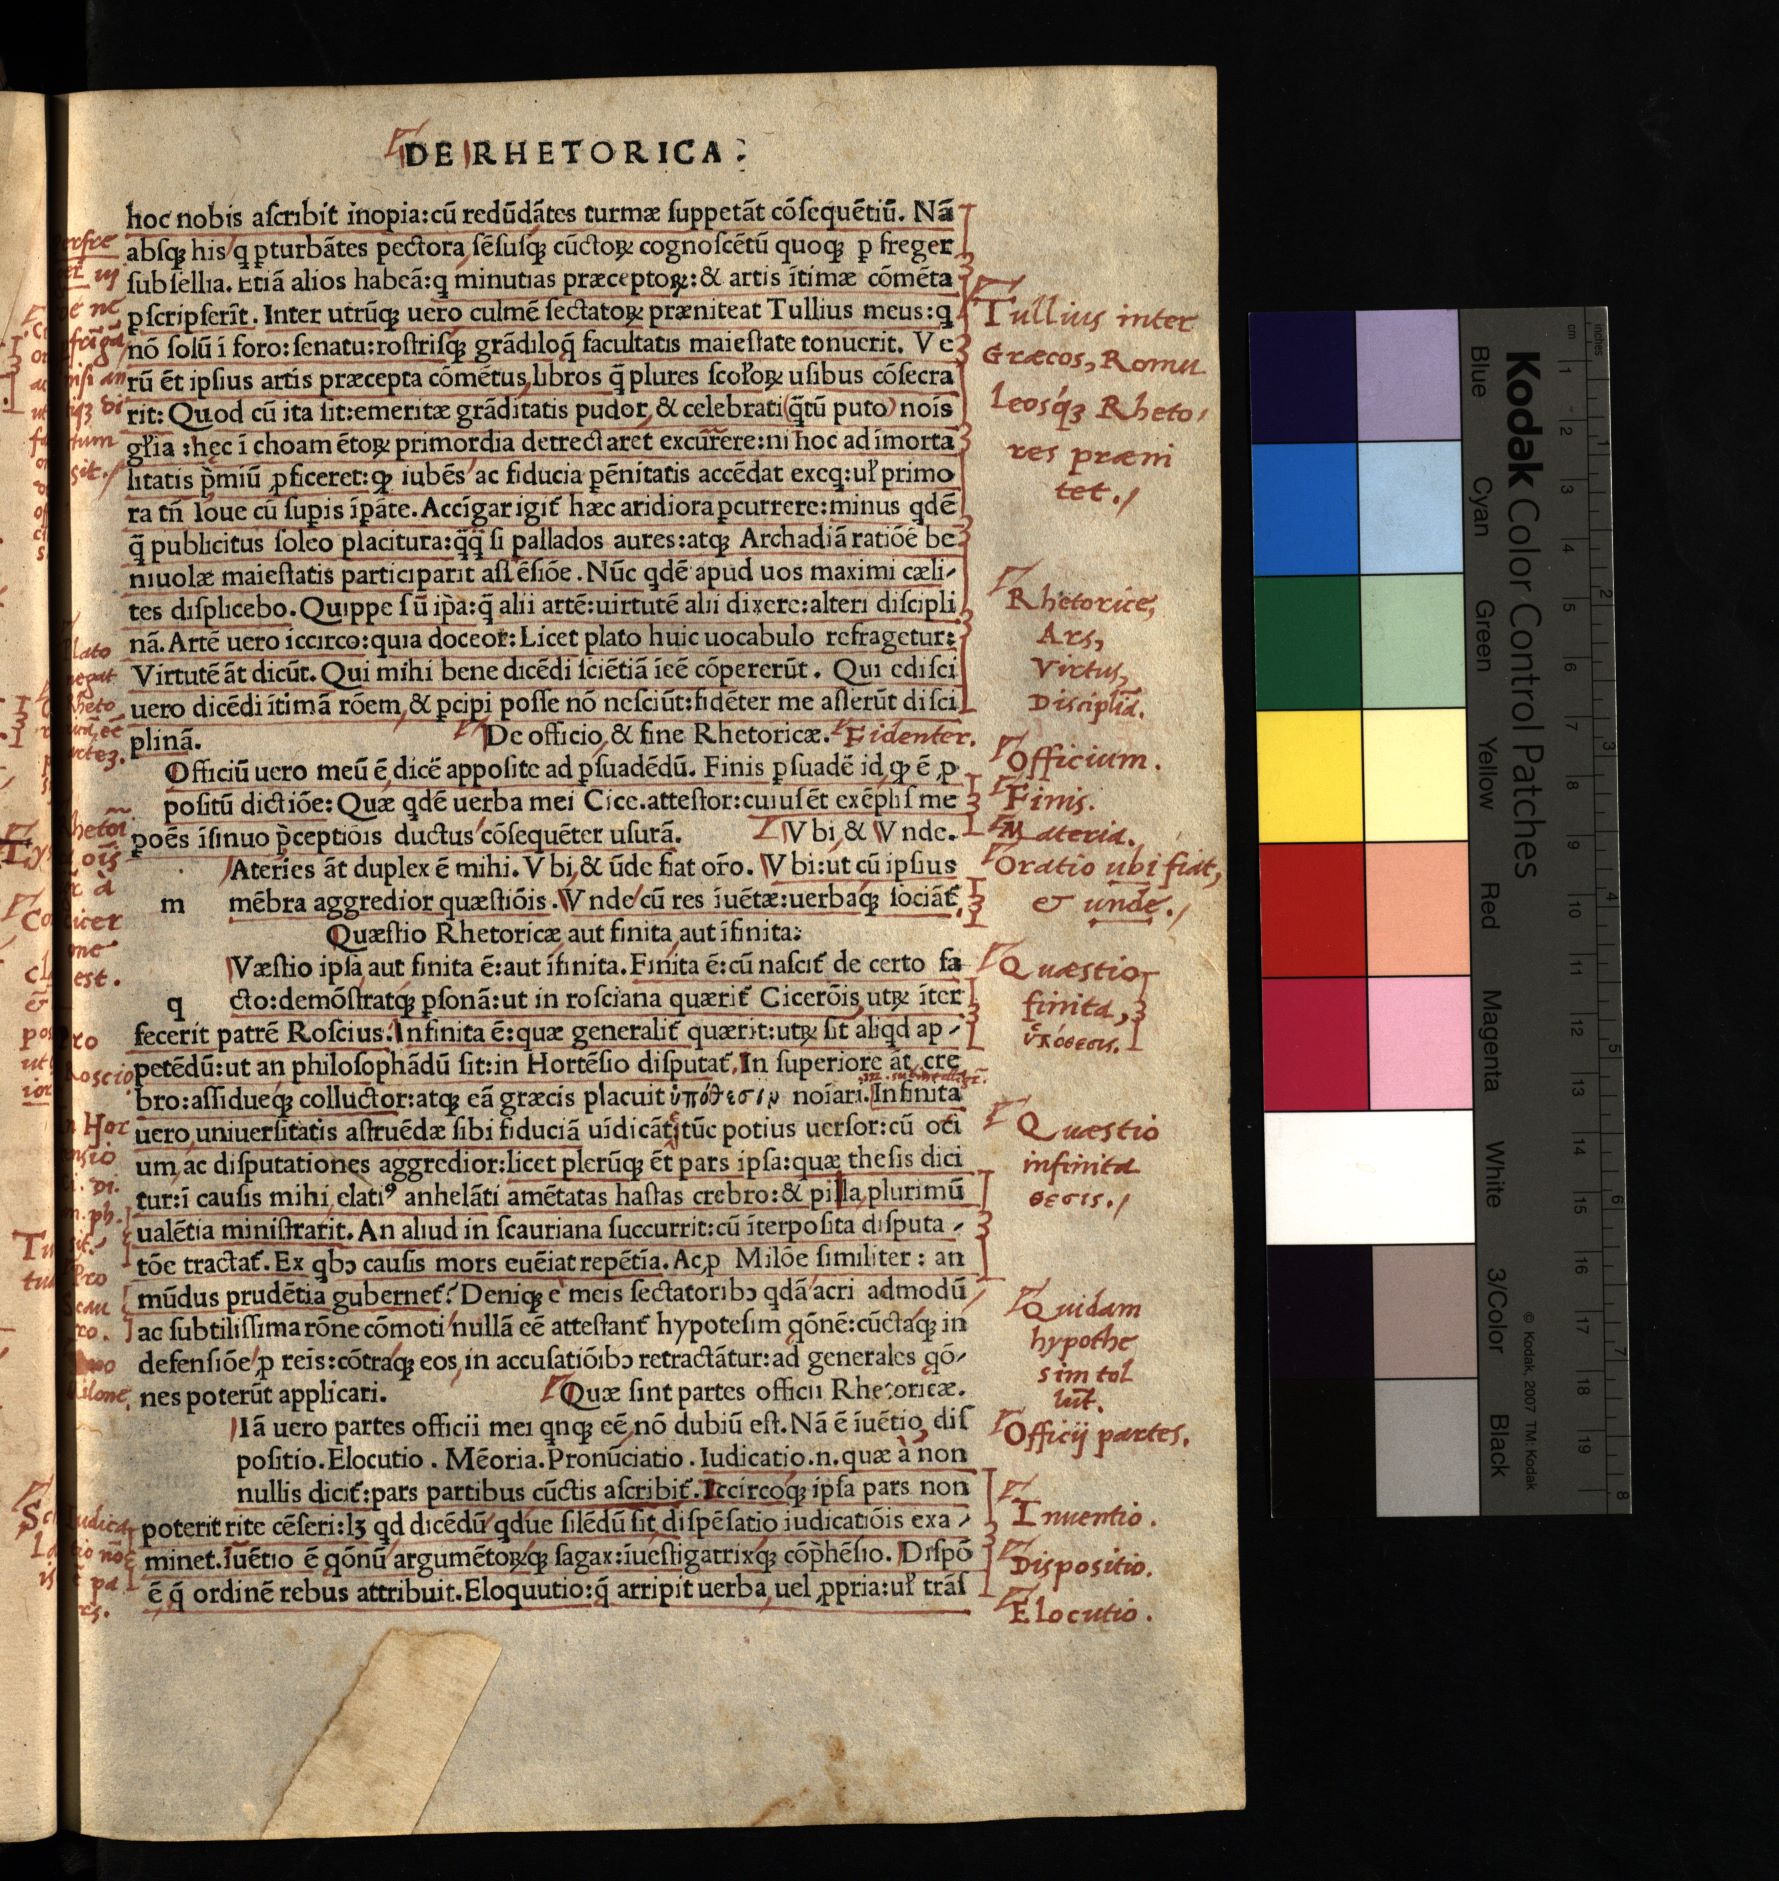 DE RHETORICA:
hoc nobis aſcribit inopia:cū redūdātes turmæ ſuppetāt cōſequētiū. Nā
abſqꝫ his q pturbātes pectora ſēſuſqꝫ cūctoꝝ cognoſcētū quoqꝫ p freger
ſubſellia. Etiā alios habeā:q minutias præceptoꝝ:& artis ītimæ cōmēta
pſcripſerīt. Inter utrūqꝫ uero culmē ſectatoꝝ præniteat Tullius meus:q
nō ſolū ī foro:ſenatu:roſtriſqꝫ grādiloq̄ facultatis maieſtate tonuerit. Ve
rū ēt ipſius artis præcepta cōmētus libros q̄ plures ſcoƚoꝝ uſibus cōſecra
rit: Quod cū ita ſit:emeritæ grāditatis pudor, & celebrati (q̄tū puto) nois
gƚia :hęc ī choamētoꝝ primordia detrectaret excūrere:ni hoc ad īmorta
litatis p̄miū ꝓficeret:qꝫ iubēs ac fiducia pēnitatis accēdat excq:uƚ primo
ra tn̄ Ioue cū ſupis īpāte. Accīgar igit̄ hæc aridiora ꝑcurrere:minus qdē
q̄ publicitus ſoleo placitura:q̄q̄ ſi pallados aures:atqꝫ Archadiā ratiōē be
niuolæ maieſtatis participarit aſſēſiōe. Nūc qdē apud uos maximi cæli-
tes diſplicebo. Quippe ſū ip̄a:q̄ alii artē:uirtutē alii dixere:alteri diſcipli
nā. Artē uero iccirco:quia doceor: Licet plato huic uocabulo refragetur:
Virtutē āt dicūt. Qui mihi bene dicēdi ſciētiā īeē cōpererūt . Qui ediſci
uero dicēdi ītimā rōem, & pcipi poſſe nō neſciūt:fidēter me aſſerūt diſci
plinā. De officio, & fine Rhetoricæ. Fidenter.
Officiū uero meū ē, dicē appoſite ad ꝑſuadēdū. Finis ꝑſuadē id, qꝫ ē ꝓ
poſitū dictiōe: Quæ qdē uerba mei Cice.atteſtor:cuiuſēt exēpliſ me
poēs īſinuo p̄ceptiōis ductus cōſequēter uſurā. Vbi, & Vnde.
Ateries āt duplex ē mihi. Vbi, & ūde fiat or̄o. Vbi:ut cū ipſius
m mēbra aggredior quæſtiōis . Vnde cū res īuētæ:uerbaqꝫ ſociāt̄
Quæſtio Rhetoricæ aut finita aut īfinita:
Væſtio ipſa aut finita ē:aut īfinita. Finita ē:cū naſcit̄ de certo fa
q cto:demōſtratqꝫ pſonā:ut in roſciana quærit̄ Cicerōis utꝝ īter
fecerit patrē Roſcius. Infinita ē:quæ generalit̄ quærit:utꝝ ſit aliqd ap-
petēdū:ut an philoſophādū ſit:in Hortēſio diſputat̄. In ſuperiore āt cre
bro:aſſidueqꝫ colluctor:atqꝫ eā græcis placuit ὑπόθεσιν noīari. Infinita
uero uniuerſitatis aſtruēdæ ſibi fiduciā uīdicāt:tūc potius uerſor:cū oti
um, ac diſputationes aggredior:licet plerūqꝫ ēt pars ipſa:quæ theſis dici
tur:ī cauſis mihi elatiꝰ anhelāti amētatas haſtas crebro:& pilla plurimū
ualētia miniſtrarit. An aliud in ſcauriana ſuccurrit:cū īterpoſita diſputa -
tōe tractat̄. Ex qbꝰ cauſis mors euēiat repētīa. Ac ꝓ Milōe ſimiliter : an
mūdus prudētia gubernet̄? Deniqꝫ e meis ſectatoribꝰ qdā acri admodū
ac ſubtiliſſima rōne cōmoti nullā eē atteſtant̄ hypoteſim qōnē:cūctaqꝫ in
defenſiōe ꝓ reis:cōtraqꝫ eos, in accuſatiōibꝰ retractātur:ad generales qō-
nes poterūt applicari. Quæ ſint partes officii Rhetoricæ.
Iā uero partes officii mei qnqꝫ eē, nō dubiū eſt. Nā ē īuētio, diſ
poſitio. Elocutio . Mēoria. Pronūciatio . Iudicatio.n.quæ à non
nullis dicit̄:pars partibus cūctis aſcribit̄. Iccircoqꝫ ipſa pars non
poterit rite cēſeri:lꝫ qd dicēdū qdue ſilēdū ſit diſpēſatio iudicatiōis exa -
minet. Iuētio ē qōnū argumētoꝝqꝫ ſagax:īueſtigatrixqꝫ cōp̄hēſio. Diſpō
ē q̄ ordinē rebus attribuit. Eloquutio:q̄ arripit uerba uel ꝓpria:uƚ trāſ
Tullius inter
Græcos, Romu
leosq́ꝫ Rheto,
res præni
tet./
Rhetorice,
Ars,
Virtus,
Disciplīa.
Officium.
Finis.
Materia.
Oratio ubi fiat,
& unde./
Quæstio
finita,
ὑπόθεσις.
Quæstio
infinita
θεσις./
Quidam
hypothe
sim tol
lūt.
Officij partes.
Inuentio.
Dispositio.
Elocutio.
Plato
negat
Rheto
Roscio
Pro
Scau
ro.
Milone,
Kodak Color Control Patches
Blue Cyan Green Yellow Red Magenta White 3/Color Black
© Kodak, 2007 TM: Kodak
cm 1 2 3 4 5 6 7 8 9 10 11 12 13 14 15 16 17 18 19
inches 1 2 3 4 5 6 7 8